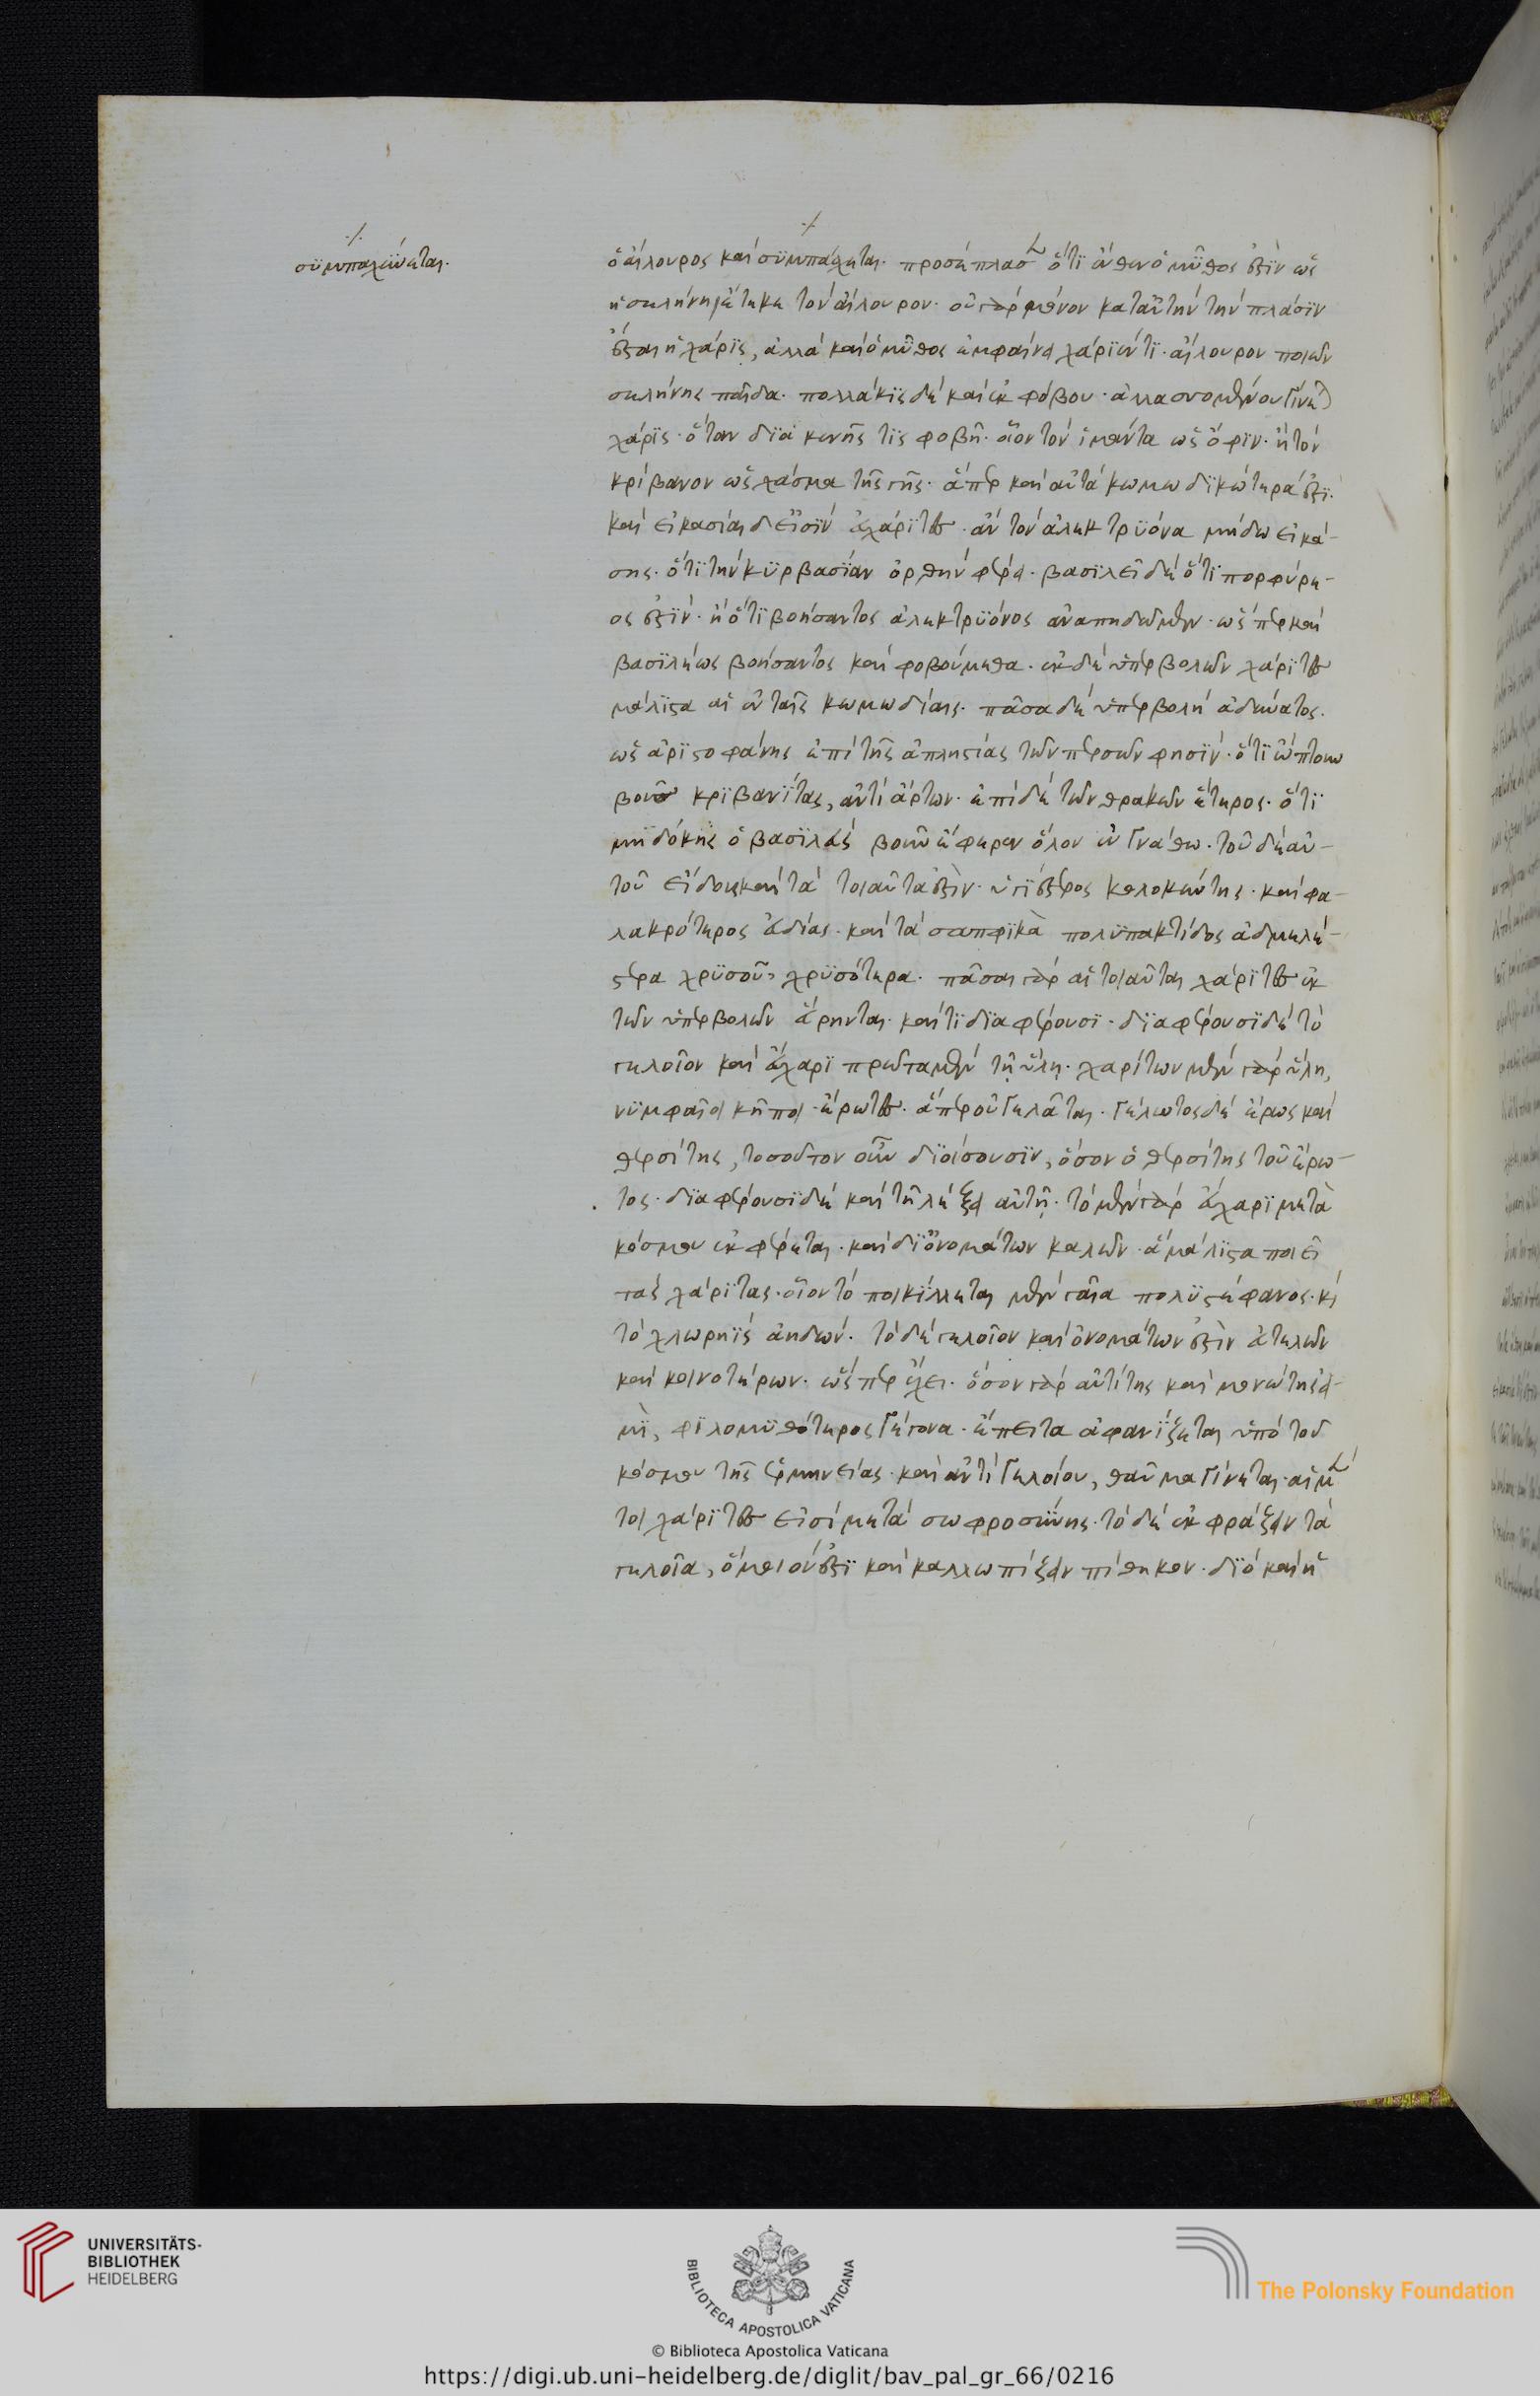 συμπαχύνεται.
ὁ αἴλουρος καὶ συμπάχεται. προσέπλασεν ὅτι ἔνθεν ὁ μῦθος ἐστὶν ὡς
ἡ σελήνη ἔτεκε τὸν αἴλουρον. οὐ γὰρ μόνον κατ αὐτὴν τὴν πλάσιν
ἔσται ἡ χάρις, ἀλλὰ καὶ ὁ μῦθος ἐμφαίνει χάριέν τι. αἴλουρον ποιῶν
σελήνης παῖδα. πολλάκις δὲ καὶ ἐκ φόβου. ἀλλασσομένου γίνεται
χάρις. ὅταν διὰ κενῆς τὶς φοβῆ. οἷον τὸν ἱμάντα ὡς ὄφιν. ἢ τὸν
κρίβανον ὡς χάσμα τῆς γῆς. ἅπερ καὶ αὐτὰ κωμωδικώτερά ἐστι.
καὶ εἰκασίαι δ εἰσὶν ἀχάριτες. ἂν τὸν ἀλεκτρυόνα μήδω εἰκά-
σης. ὅτι τὴν κυρβασίαν ὀρθὴν φέρει. βασιλεῖ δὲ ὅτι πορφύρε-
ος ἐστίν. ἢ ὅτι βοήσαντος ἀλεκτρυόνος ἀναπηδῶμεν. ὥσπερ καὶ
βασιλέως βοήσαντος καὶ φοβούμεθα. ἐκ δὲ ὑπερβολῶν χάριτες
μάλιστα αἱ ἐν ταῖς κωμωδίαις. πᾶσα δὲ ὑπερβολὴ ἀδύνατος.
ὡς ἀριστοφάνης ἐπὶ τῆς ἀπληστίας τῶν περσῶν φησίν. ὅτι ὤπτουν
βοῦς κριβανίτας, ἀντὶ ἄρτων. ἐπὶ δὲ τῶν θρακῶν ἕτερος. ὅτι
μηδόκης ὁ βασιλεὺς βοῦν ἔφερεν ὅλον ἐν γνάθω. τοῦ δὲ αὐ-
τοῦ εἴδους καὶ τὰ τοιαῦτα ἐστὶν. ὑγιέστερος κολοκύντης. καὶ φα-
λακρότερος εὐδίας. καὶ τὰ σαπφικὰ πολυπακτίδος ἀδμελέ-
στερα χρυσοῦ, χρυσότερα. πᾶσαι γὰρ αἱ τοιαῦται χάριτες ἐκ
τῶν ὑπερβολῶν εὕρηνται. καὶ τὶ διαφέρουσι. διαφέρουσι δὲ τὸ
γελοῖον καὶ εὔχαρι πρῶτα μὲν τῇ ὕλῃ. χαρίτων μὲν γὰρ ὕλη,
νυμφαῖοι κῆποι. ἔρωτες. ἅπερ οὐ γελᾶται. γέλωτος δὲ ἔρως καὶ
θερσίτης, τοσοῦτον οὖν διοίσουσιν, ὅσον ὁ θερσίτης τοῦ ἔρω-
τος. διαφέρουσι δὲ καὶ τῆ λέξει αὐτῇ. τὸ μὲν γὰρ εὔχαρι μετὰ
κόσμου ἐκφέρεται. καὶ δι ὀνομάτων καλῶν. ἃ μάλιστα ποιεῖ
τὰς χάριτας. οἷον τὸ ποικίλλεται μὲν γαῖα πολυστέφανος. κὶ
τὸ χλωρηὶς ἀηδών. τὸ δὲ γελοῖον καὶ ὀνομάτων ἐστὶν εὐτελῶν
καὶ κοινοτέρων. ὥσπερ ἔχει. ὅσον γὰρ αὐτίτης καὶ μονώτης εἰ-
μὶ, φιλομυθότερος γέγονα. ἔπειτα ἀφανίζεται ὑπὸ τοῦ
κόσμου τῆς ἑρμηνείας. καὶ ἀντὶ γελοίου, θαῦμα γίνεται. αἱ μέν
τοι χάριτες εἰσὶ μετὰ σωφροσύνης. τὸ δὲ ἐκφράζειν τὰ
γελοῖα, ὅμοιόν ἐστι καὶ καλλωπίζειν πίθηκον. διὸ καὶ ἡ
UNIVERSITÄTS-
BIBLIOTHEK
HEIDELBERG
BIBLIOTECA APOSTOLICA VATICANA
The Polonsky Foundation
© Biblioteca Apostolica Vaticana
https://digi.ub.uni-heidelberg.de/diglit/bav_pal_gr_66/0216